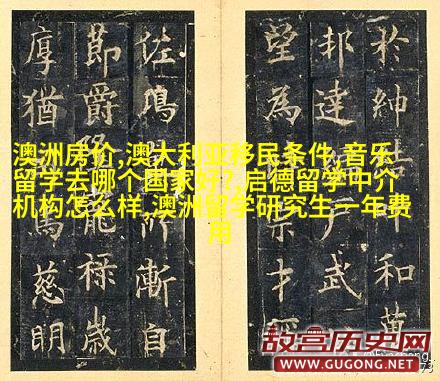 於紳和
邦達户武
望為才
佐漸自
節爵能祿歲
厚猶馬慈明
澳洲房价,澳大利亚移民条件,音乐
留学去哪个国家好?,启德留学中介
机构怎么样,澳洲留学研究生一年费
用
故宫历史网
WWW.GUGONG.NET
73